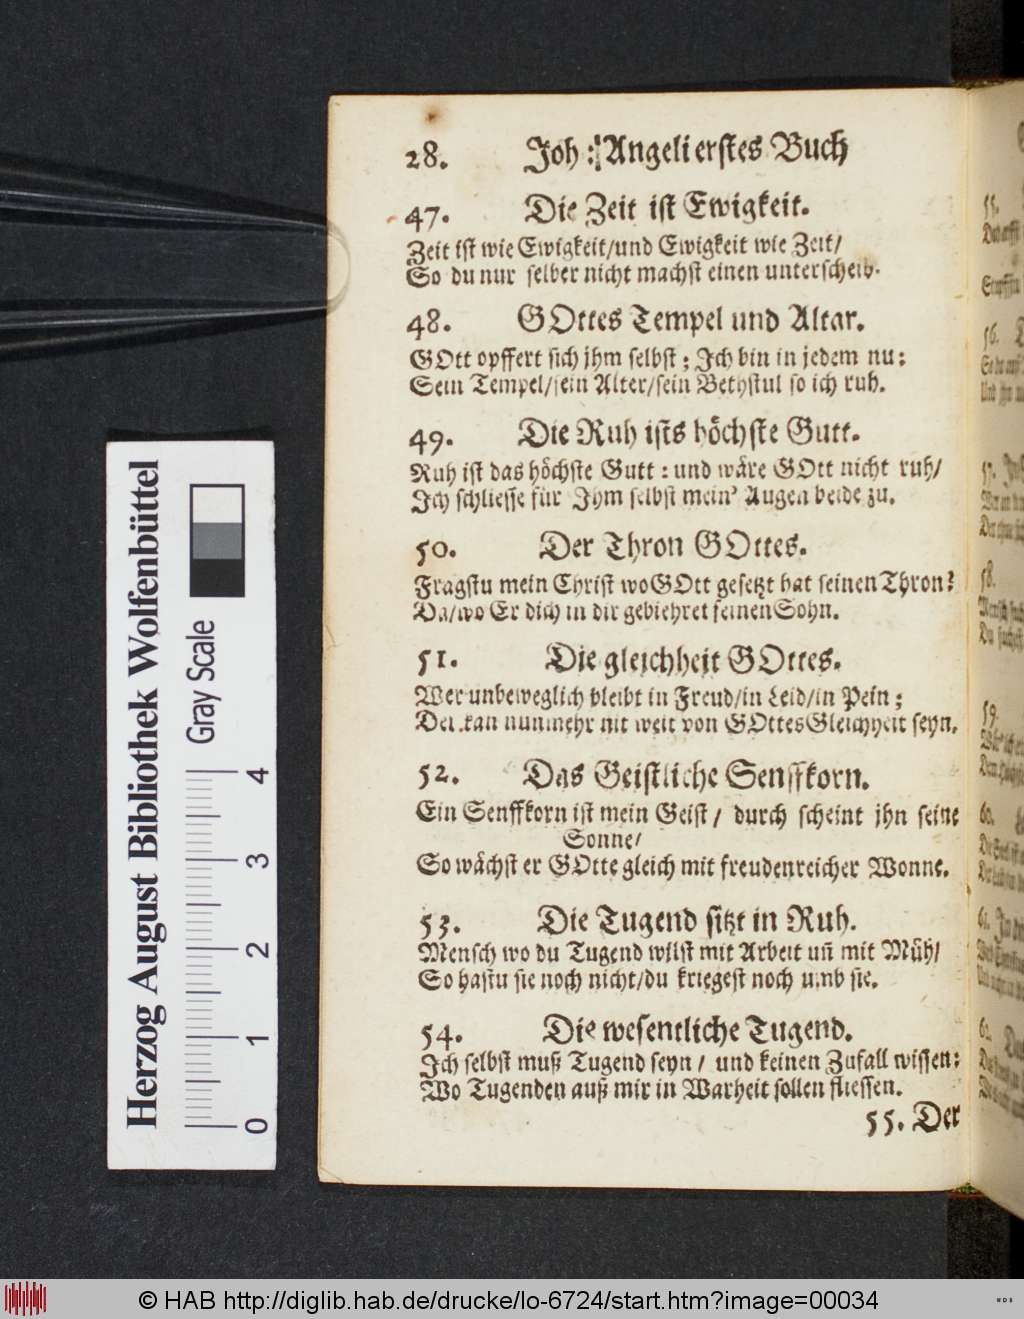 28. Joh: Angeli erstes Buch
47. Die Zeit ist Ewigkeit.
Zeit ist wie Ewigkeit/und Ewigkeit wie Zeit/
So du nur selber nicht machst einen unterscheid.
48. GOttes Tempel und Altar.
GOtt opffert sich jhm selbst; Jch bin in jedem nu:
Sein Tempel/sein Alter/sein Bethstul so ich ruh.
49. Die Ruh ists höchste Gutt.
Ruh ist das höchste Gutt: und wäre GOtt nicht ruh/
Jch schliesse für Jhm selbst mein' Augen beide zu.
50. Der Thron GOttes.
Fragstu mein Christ wo GOtt gesetzt hat seinen Thron?
Da/wo Er dich in dir gebiehret seinen Sohn.
51. Die gleichheit GOttes.
Wer unbeweglich bleibt in Freud/in Leid/in Pein;
Der kan nunmehr nit weit von GOttes Gleichheit seyn.
52. Das Geistliche Senffkorn.
Ein Senffkorn ist mein Geist/ durch scheint jhn seine
Sonne/
So wächst er GOtte gleich mit freudenreicher Wonne.
53. Die Tugend sitzt in Ruh.
Mensch wo du Tugend wilst mit Arbeit uñ mit Müh/
So hastu sie noch nicht/du kriegest noch umb sie.
54. Die wesentliche Tugend.
Jch selbst muß Tugend seyn/ und keinen Zufall wissen:
Wo Tugenden auß mir in Warheit sollen fliessen.
55. Der
Herzog August Bibliothek Wolfenbüttel
Gray Scale
0 1 2 3 4
© HAB http://diglib.hab.de/drucke/lo-6724/start.htm?image=00034